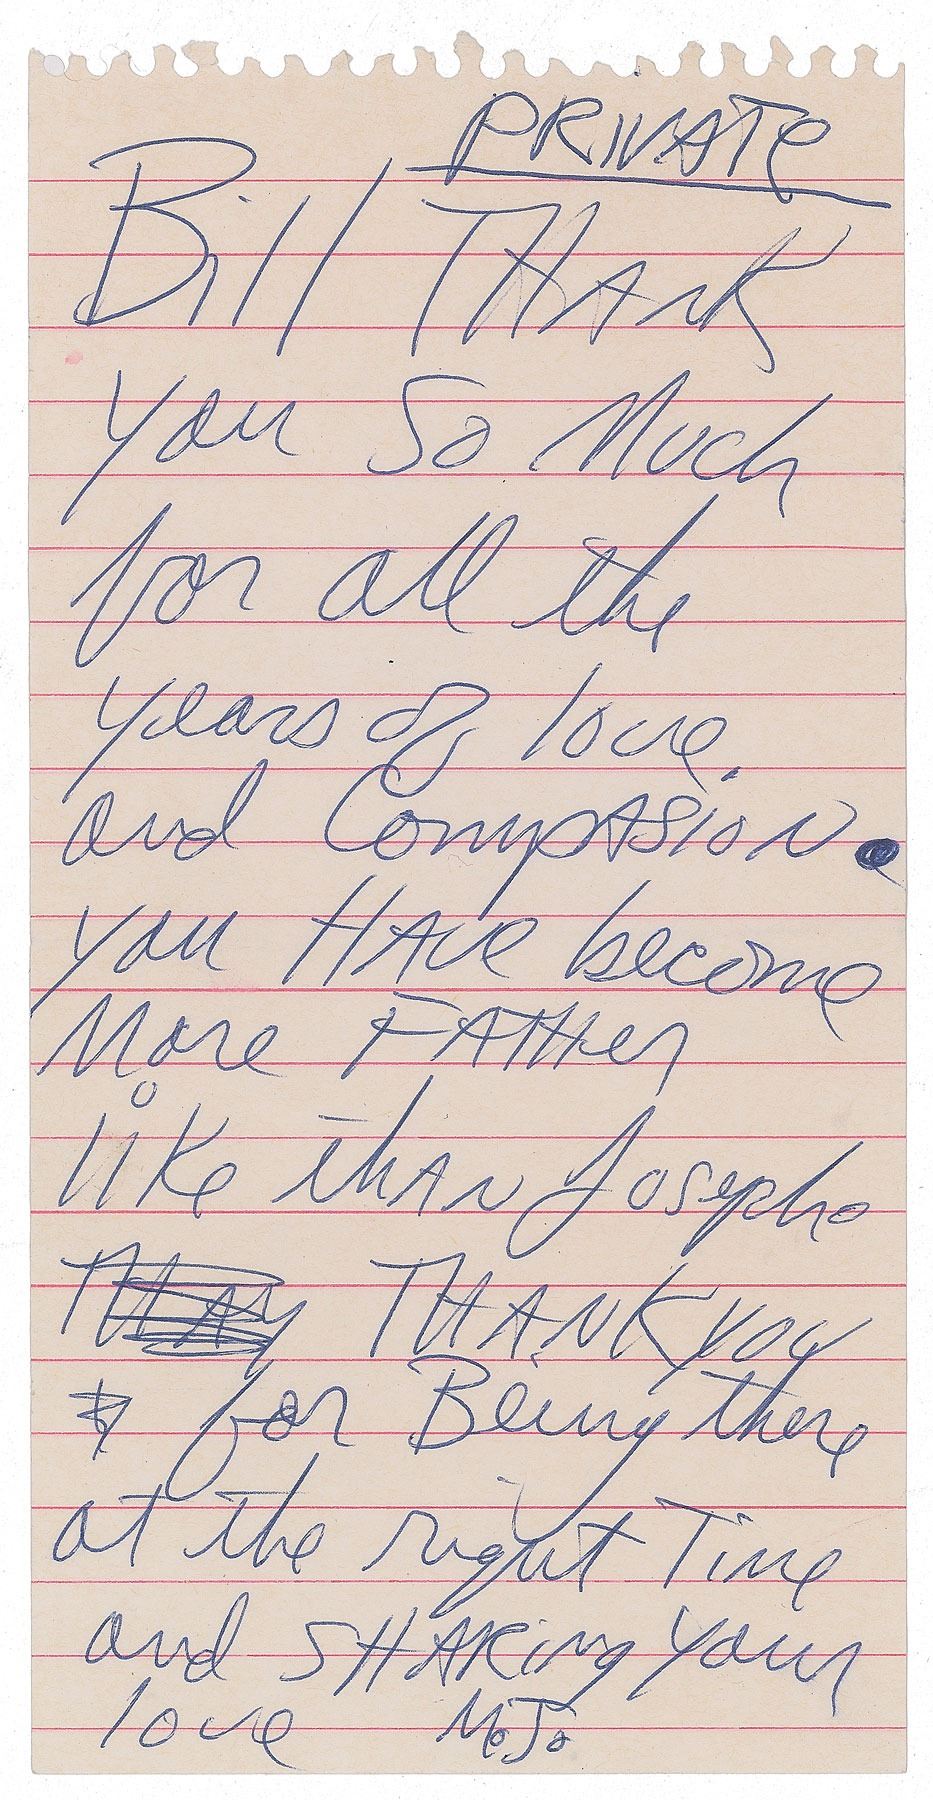 PRIVATE
Bill THANK
you So Much
for all the
years of love,
and CompASion.
you HAve become
More FATHer
like thAN Joseph.
THANK you
for Being there
at the right Time
and SHARing your
love MoJo